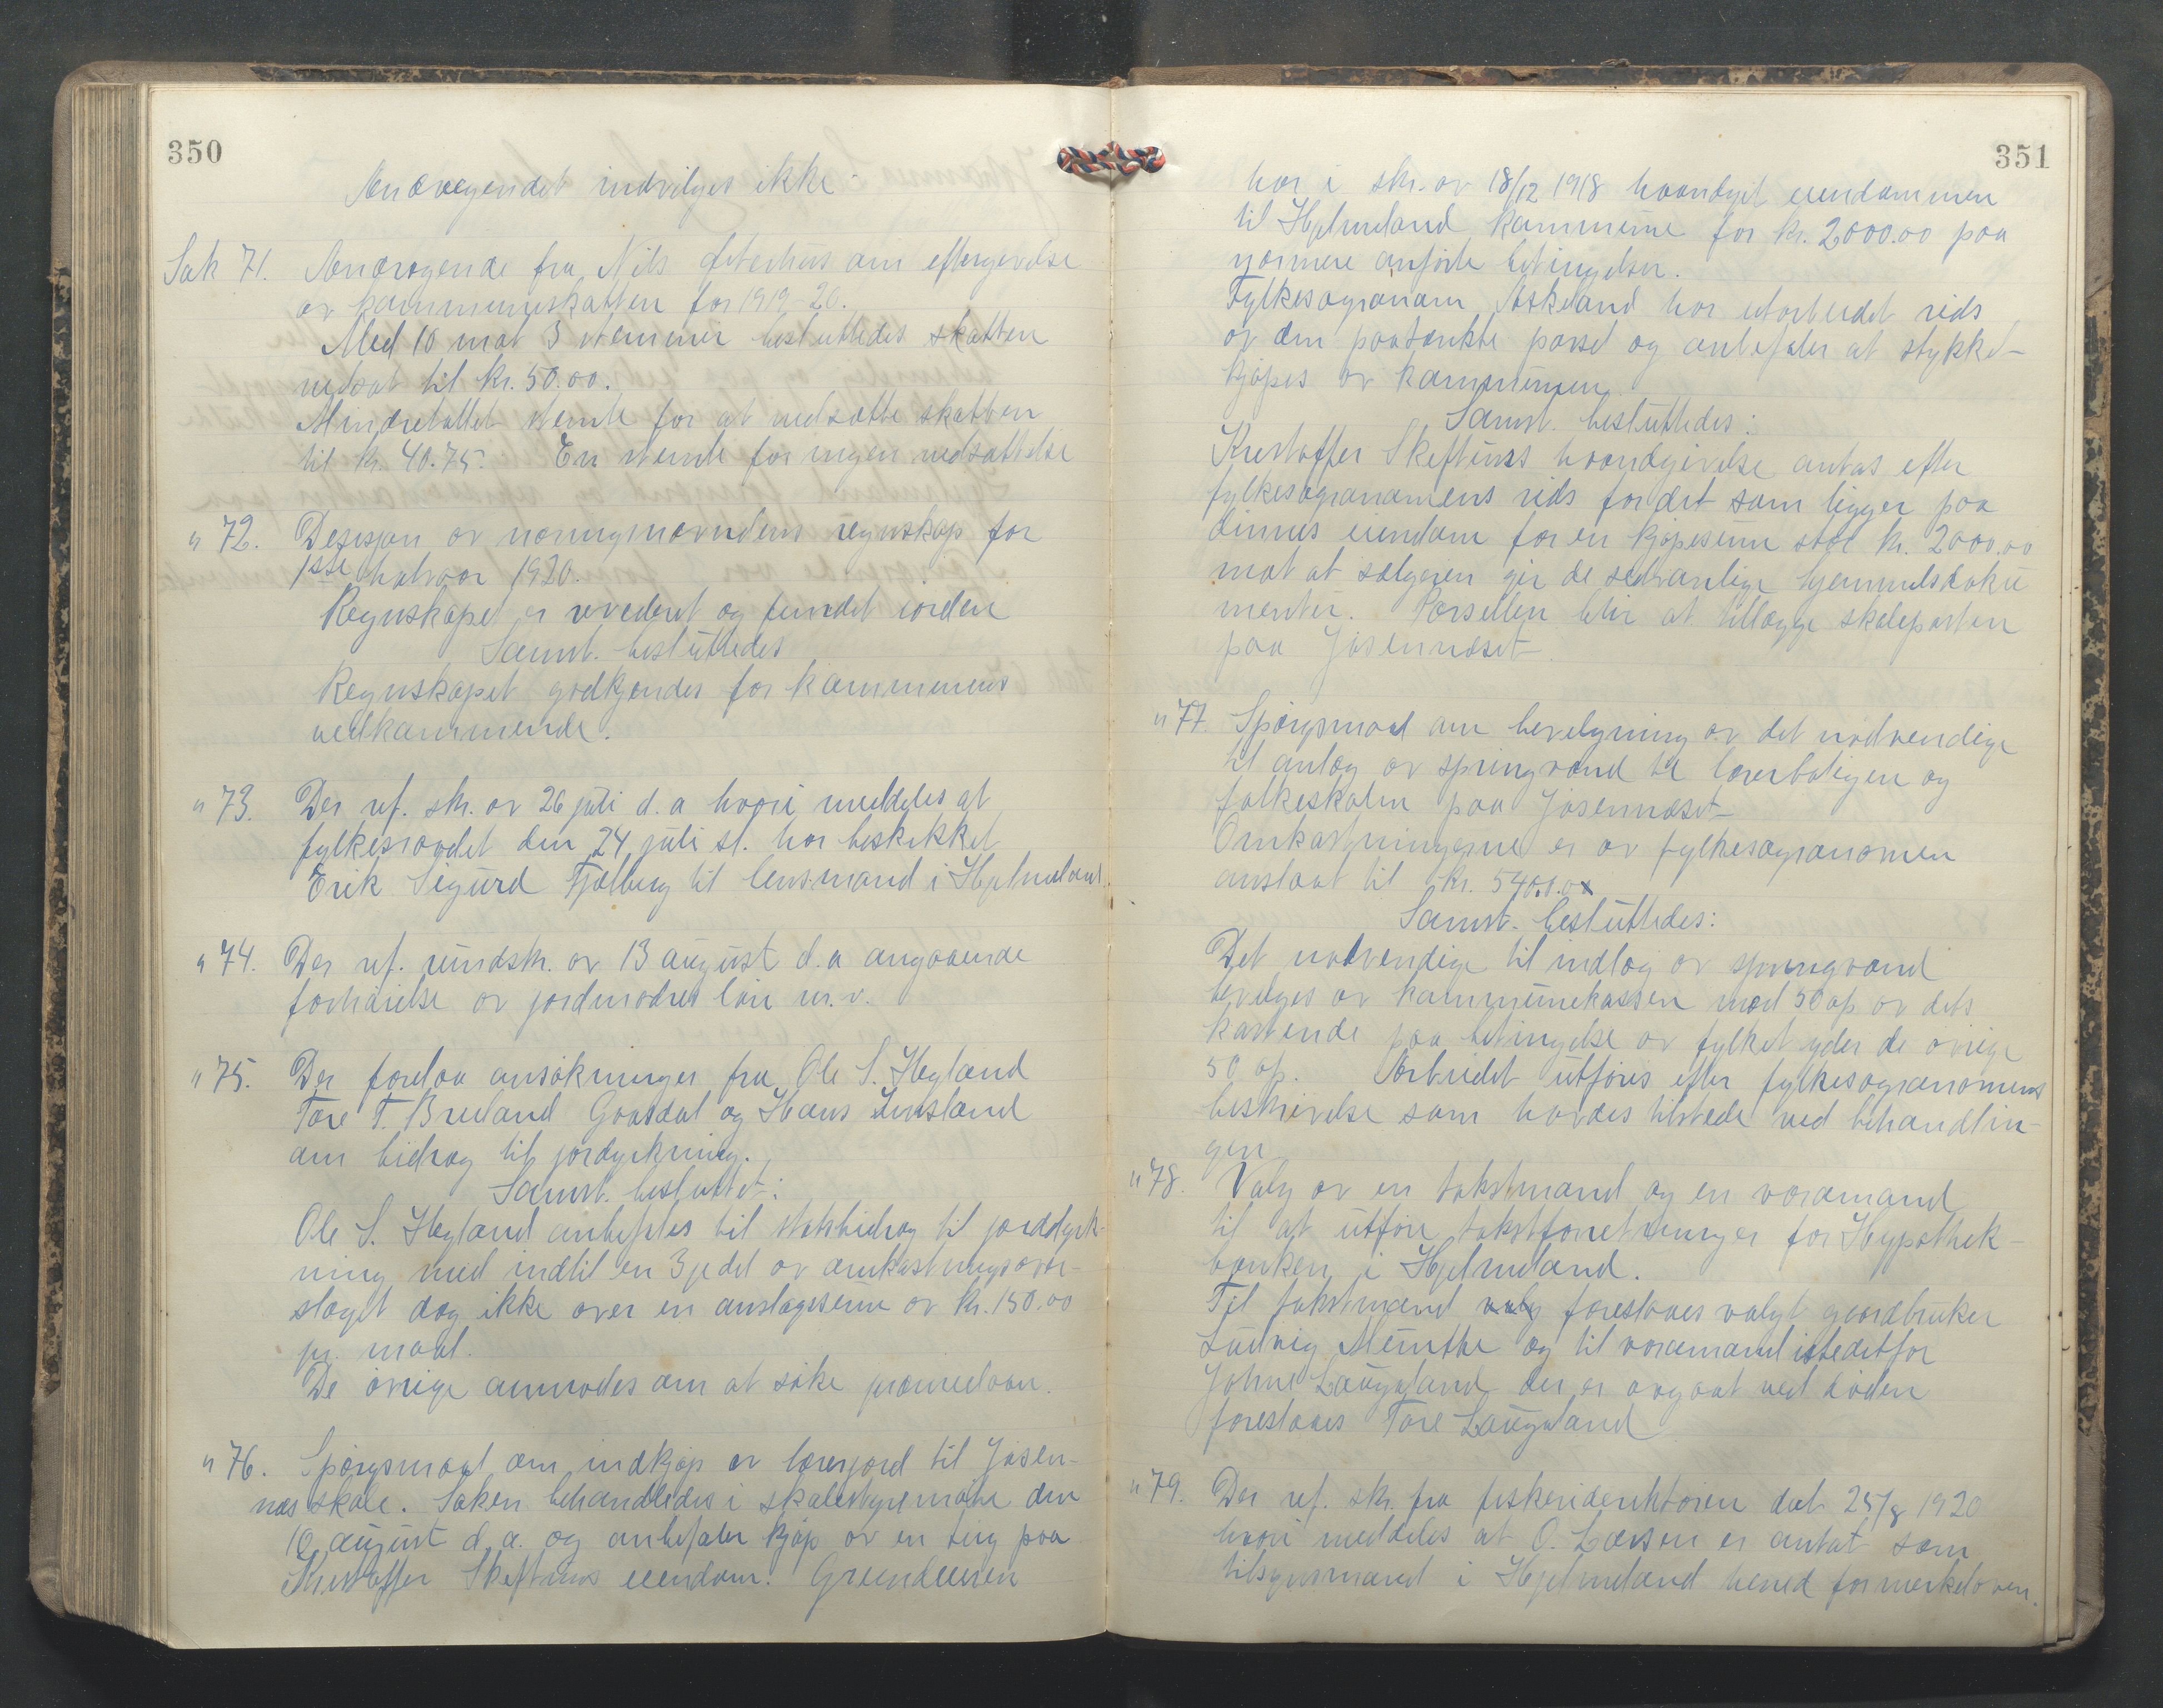 350
Andragendet indvilges ikke.
Sak 71. Andragende fra Nils om eftergivelse
av kommuneskatten for 1919-20.
Med 10 mot 3 stemmer besluttedes skatten
nedsat til kr. 50.00.
Mindretallet stemte for at nedsætte skatten
til kr. 40.75. En stemte for ingen nedsættelse
" 72. Desisjon av næringsnævndens regnskap for
1ste halvaar 1920.
Regnskapet er revideret og fundet iorden
Samst. besluttedes
Regnskapet godkjendes for kommunens
vedkommende.
" 73. Der ref. skr. av 26 juli d.a hvori meddeles at
fylkesraadet den 24 juli sl. har beskikket
Erik Sigurd Fjelberg til lensmand i Hjelmeland.
" 74. Der ref. rundskr. av 13 august d.a angaaende
forhöielse av jordmødres løn m.v.
" 75. Der forelaa ansökninger fra Ole S. Høgland
Tore T. Breiland Graasdal og Hans
om bidrag til jorddyrkning.
Samst. besluttet:
Ole S. Høgland anbefales til statsbidrag til jorddyrk-
ning med indtil en 3jedel av omkostningsover-
slaget dog ikke over en anslagssum av kr. 150.00
pr. maal.
De övrige anmodes om at söke præmielaan.
" 76. Spørgsmaal om indkjøp av lærerjord til Jøsen-
næs skole. Saken behandledes i skolestyremøte den
10 august d.a. og anbefaler kjøp av en teig paa
Kristoffer Skeftuns eiendom. Grundeieren
351
har i skr. av 18/12 1918 haandgit eiendommen
til Hjelmeland kommune for kr. 2000.00 paa
nærmere anførte betingelser.
Fylkesagronom Askeland har utarbeidet rids
av den paatænkte parsel og anbefaler at stykket
kjøpes av kommunen
Samst. besluttedes:
Kristoffer Skeftuns haandgivelse antas efter
fylkesagronomens rids for det som ligger paa
dennes eiendom for en kjøpesum stor kr. 2000.00
mot at sælgeren gir de sedvanlige hjemmelsdoku
menter. Parsellen blir at tillægge skoleposten
paa Jøsenneset
" 77. Spørgsmaal om bevilgning av det nødvendige
til anlæg av springvand til lærerboligen og
folkeskolen paa Jøsenneset
Omkostningerne er av fylkesagronomen
anslaat til kr. 540
Samst. besluttedes:
Det nødvendige til indlæg av springvand
bevilges av kommunekassen med 50 % av dets
kostende paa betingelse av fylket yder de övrige
50 %. Arbeidet utføres efter fylkesagronomens
beskrivelse som havdes tilstede ved behandlin-
gen
" 78. Valg av en takstmand og en varamand
til at utføre takstforretninger for Hypothek-
banken i Hjelmeland.
Til takstmand valg foreslaaes valgt gaardbruker
Ludvig Meinthe og til varamand istedetfor
Johne Laugaland der er avgaat ved døden
foreslaaes Tore Laugaland
" 79. Der ref. skr. fra fiskeridirektøren dat 25/8 1920
hvori meddeles at O. Larsen er antat som
tilsynsmand i Hjelmeland herred for merkeloven.